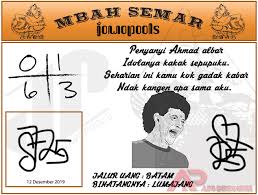 MBAH SEMAR
jowopools
Penyanyi Ahmad albar
Idolanya kakak sepupuku.
Seharian ini kamu kok gadak kabar
Ndak kangen apa sama aku.
0 1
6 3
12 Desember 2019
JALUR UANG : BATAM
BINATANGNYA : LUMAJANG
AP